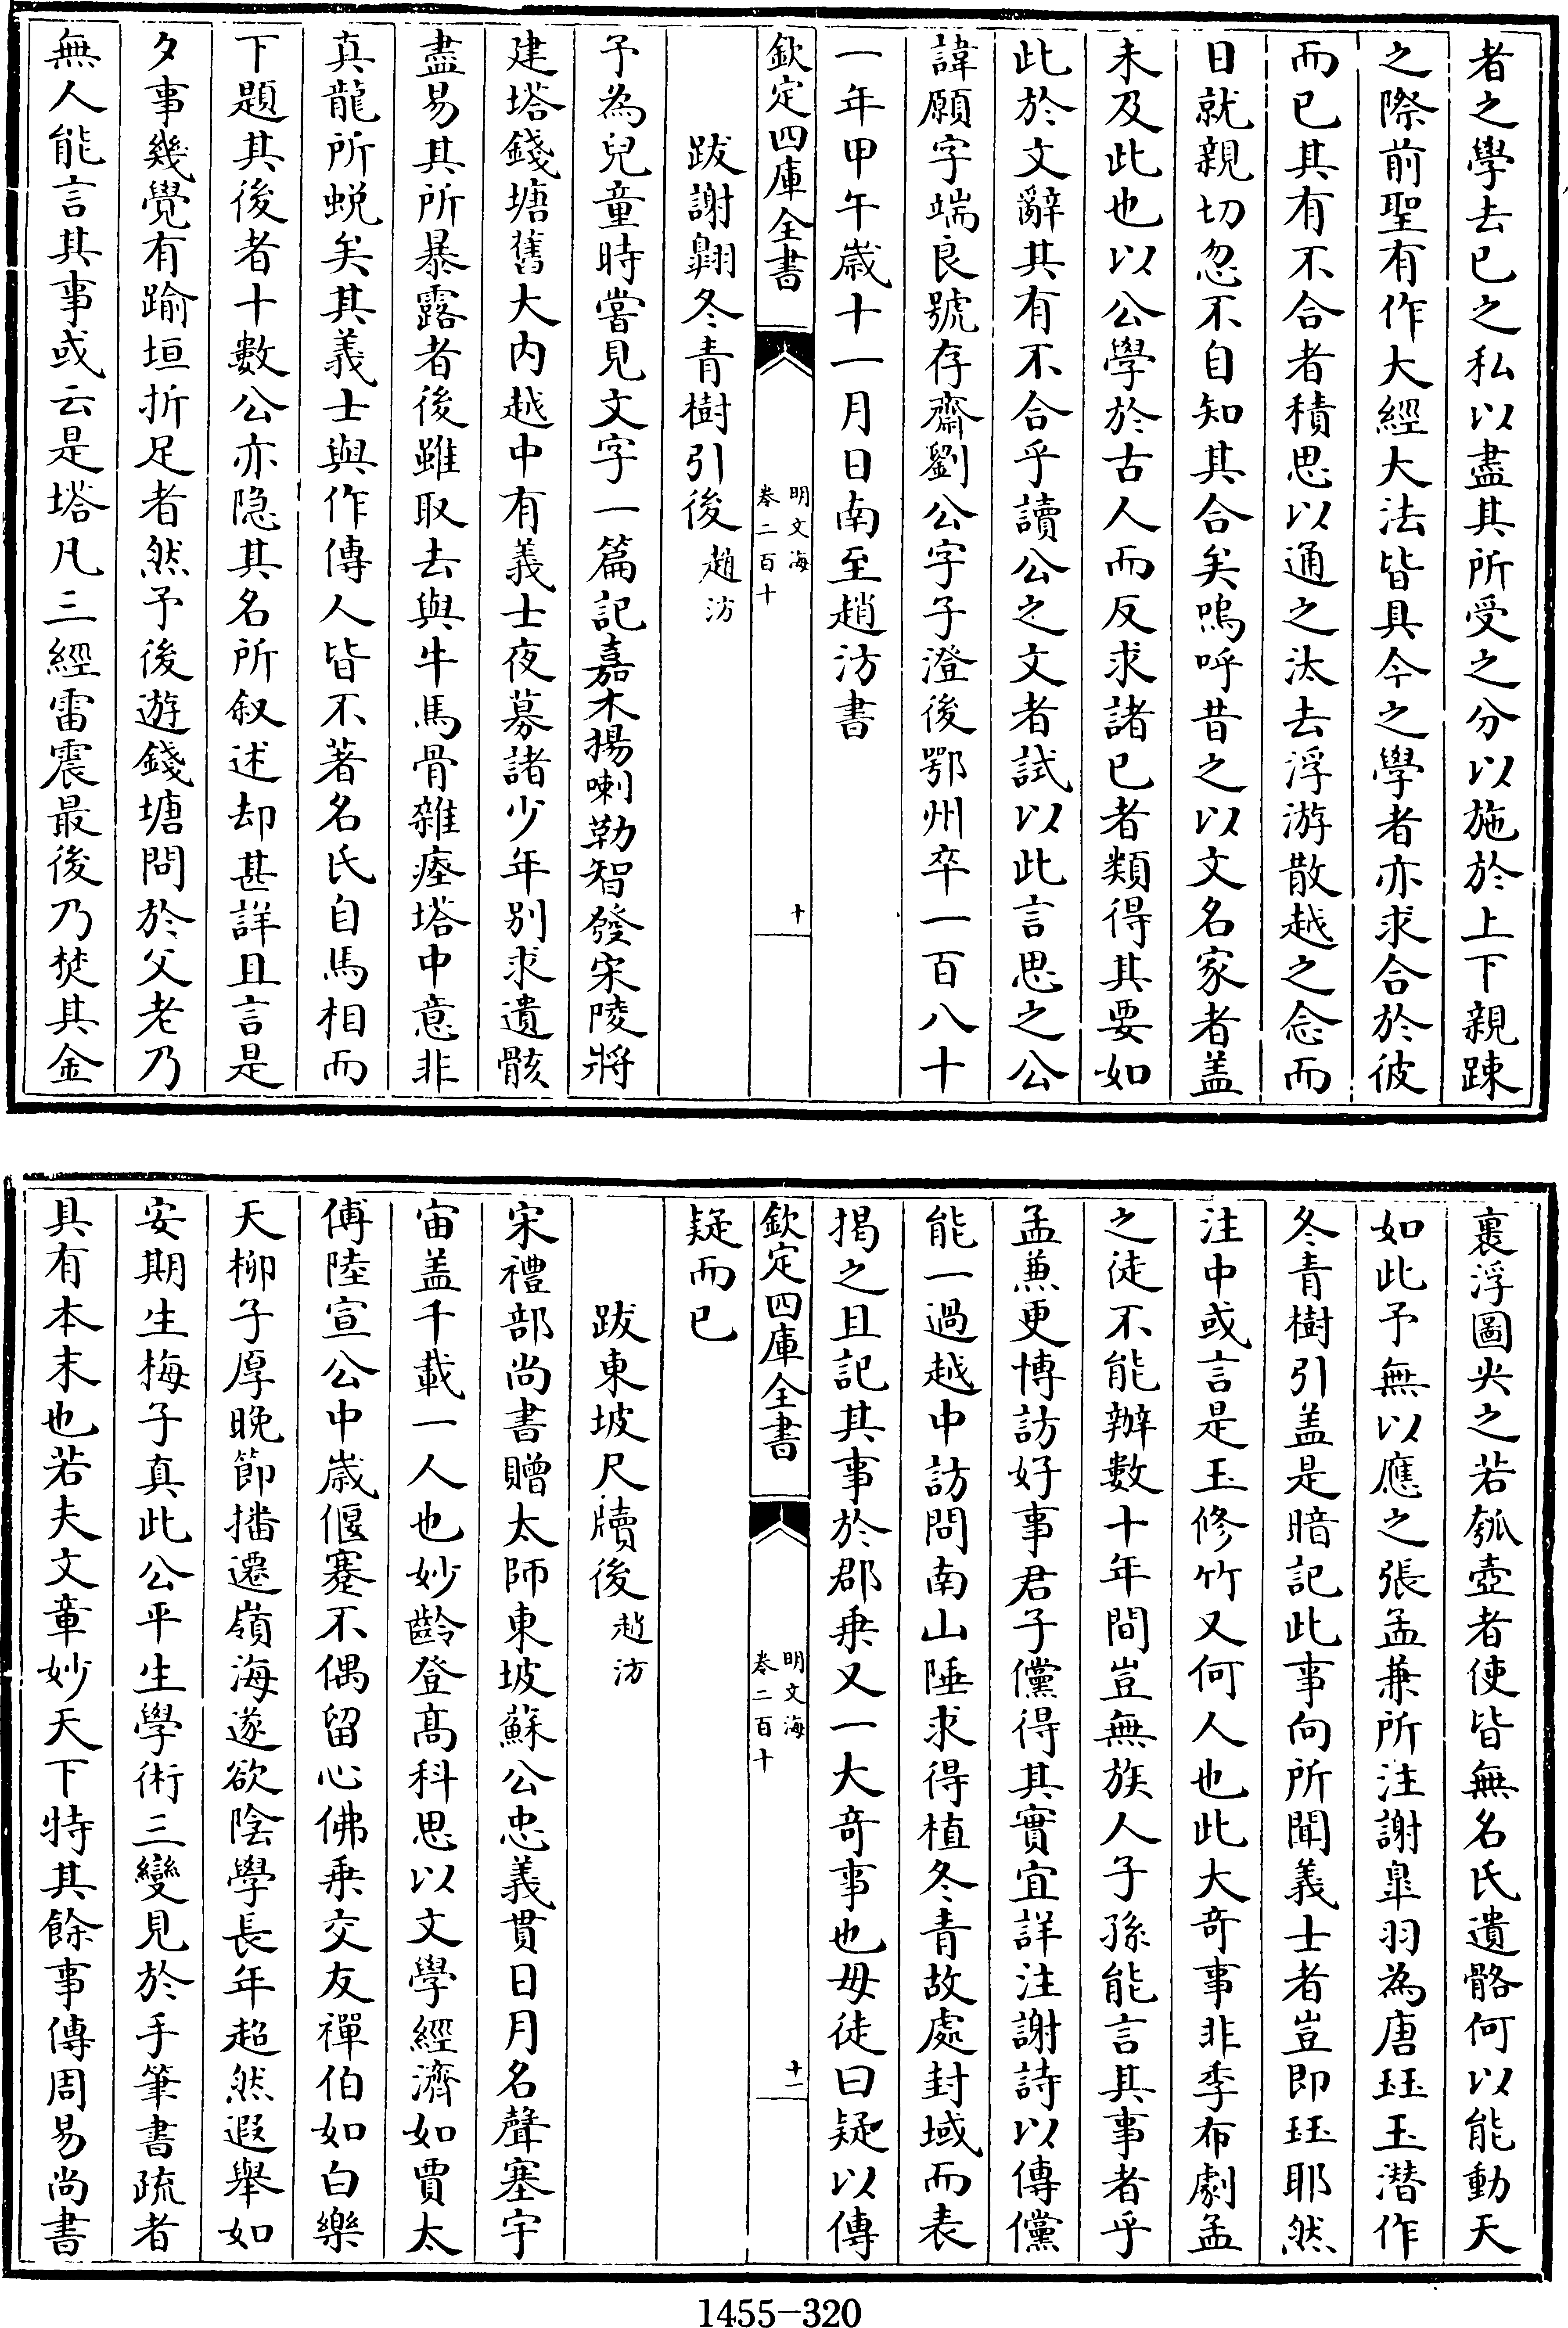 者之學去已之私以盡其所受之分以施於上下親踈
之際前聖有作大經大法皆具今之學者亦求合於彼
而已其有不合者積思以通之汰去浮游散越之念而
日就親切忽不自知其合矣嗚呼昔之以文名家者盖
未及此也以公學於古人而反求諸已者類得其要如
此於文辭其有不合乎讀公之文者試以此言思之公
諱願字端良號存齋劉公字子澄後鄂州卒一百八十
一年甲午歲十一月日南至趙汸書
欽定四庫全書
明文海
卷二百十
十
跋謝翺冬青樹引後 趙汸
予為兒童時嘗見文字一篇記嘉木揚喇勒智發宋陵將
建塔錢塘舊大內越中有義士夜募諸少年别求遺骸
盡易其所暴露者後雖取去與牛馬骨雜瘞塔中意非
真龍所蜕矣其義士與作傳人皆不著名氏自馬相而
下題其後者十數公亦隐其名所叙述却甚詳且言是
夕事幾覺有踰垣折足者然予後遊錢塘問於父老乃
無人能言其事或云是塔凡三經雷震最後乃焚其金
裹浮圖火之若瓠壺者使皆無名氏遺骼何以能動天
如此予無以應之張孟兼所注謝臯羽為唐珏玉潛作
冬青樹引盖是暗記此事向所聞義士者豈即珏耶然
注中或言是王修竹又何人也此大奇事非季布劇孟
之徒不能辦數十年間豈無族人子孫能言其事者乎
孟兼更博訪好事君子儻得其實宜詳注謝詩以傳儻
能一過越中訪問南山陲求得植冬青故處封域而表
揭之且記其事於郡乗又一大奇事也毋徒曰疑以傳
欽定四庫全書
明文海
卷二百十
十一
疑而已
跋東坡尺牘後 趙汸
宋禮部尚書贈太師東坡蘇公忠義貫日月名聲塞宇
宙盖千載一人也妙齡登髙科思以文學經濟如賈太
傅陸宣公中歲偃蹇不偶留心佛乗交友禪伯如白樂
天柳子厚晚節播遷嶺海遂欲陰學長年超然遐舉如
安期生梅子真此公平生學術三變見於手筆書疏者
具有本末也若夫文章妙天下特其餘事傳周易尚書
1455-320